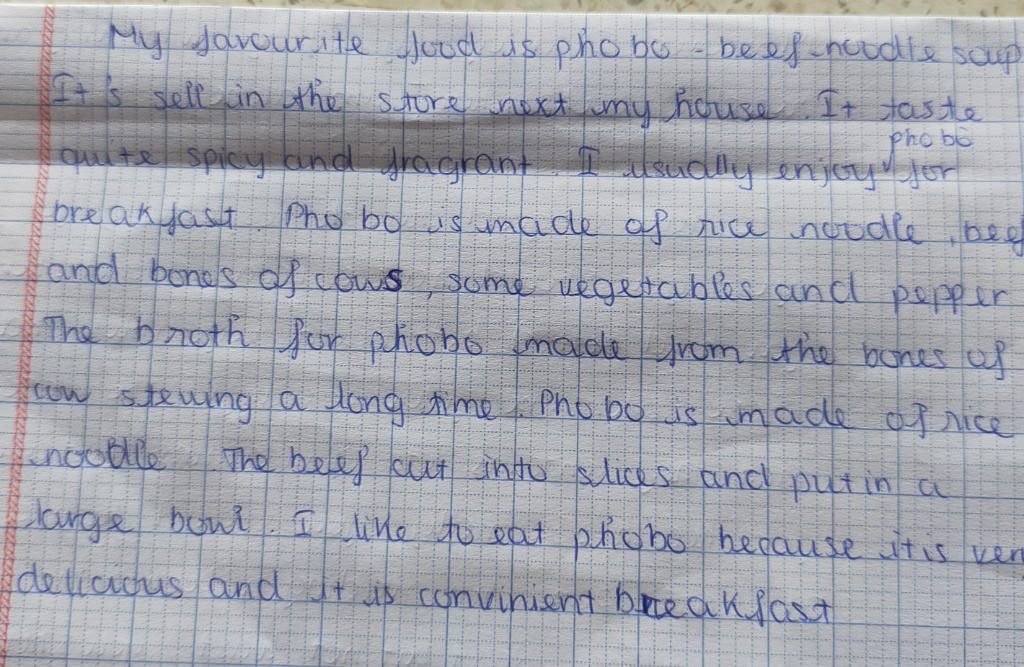 My favourite food is pho bo - beef noodle soup
It's sell in the store next my house. It taste
phobo
quite spicy and fragrant. I usually enjoy for
breakfast. Pho bo is made of rice noodle, beef
and bones of cows, some vegetables and pepper
The broth for phobo made from the bones of
cow stewing a long time. Pho bo is made of rice
noodle. The beef cut into slices and put in a
large bowl. I like to eat phobo because it is ver
delicious and it is convinient breakfast